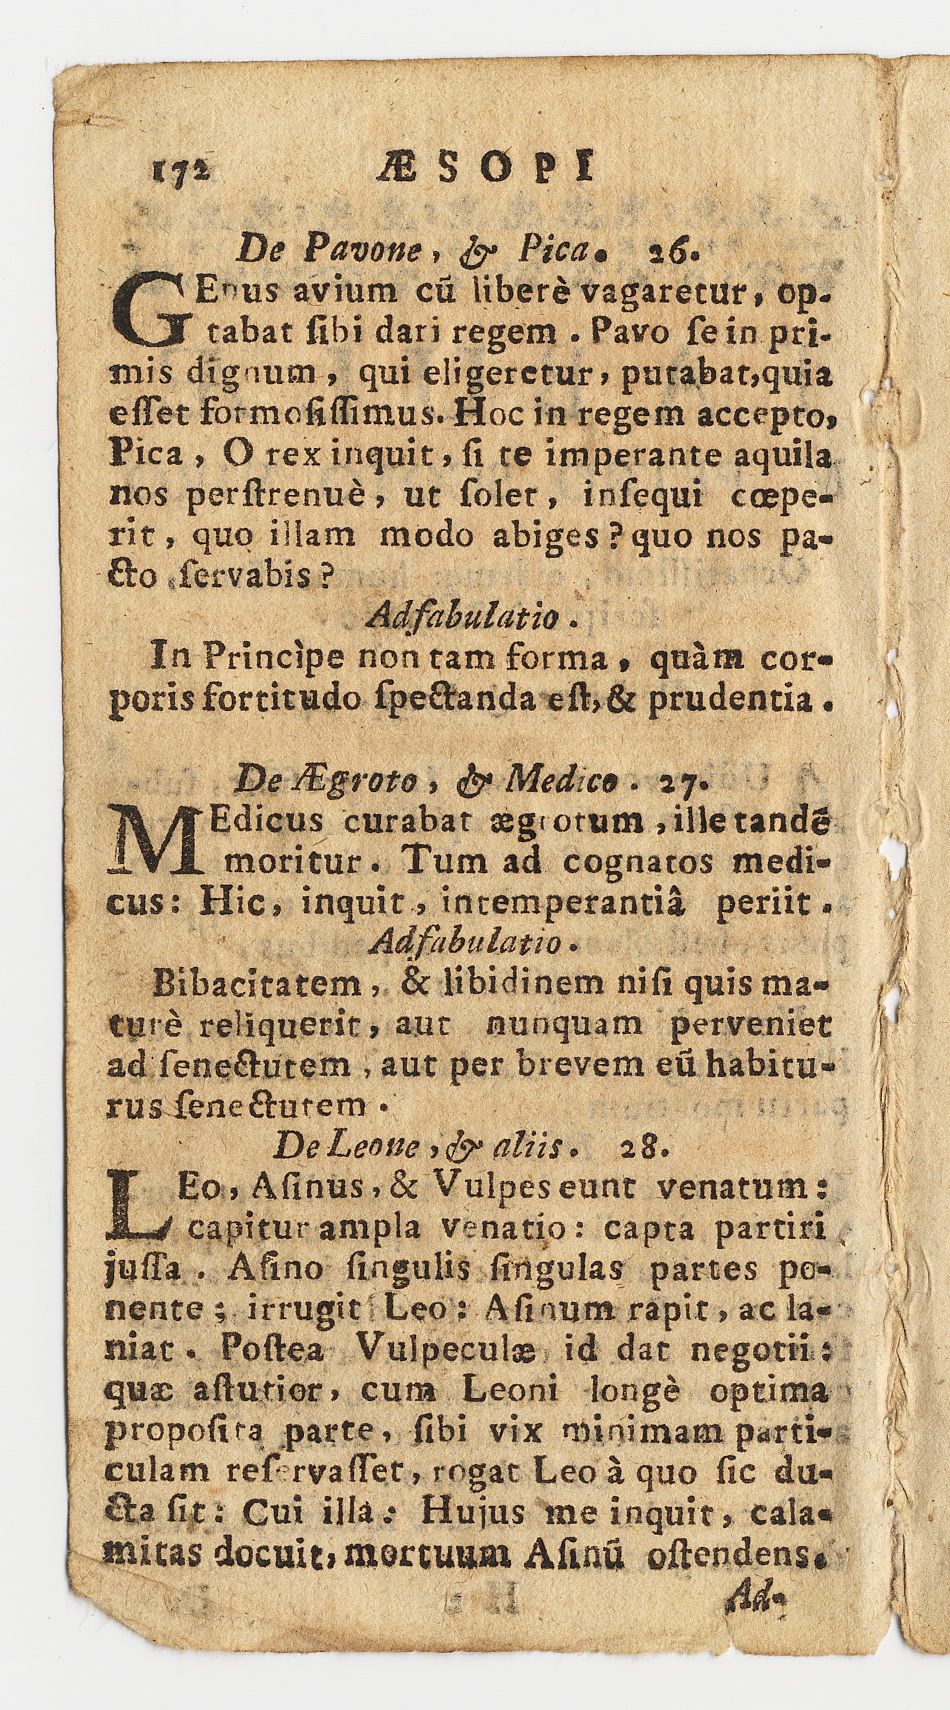 172 ÆSOPI
De Pavone, & Pica. 26.
GEnus avium cū liberè vagaretur, op-
tabat ſibi dari regem. Pavo ſe in pri-
mis dignum, qui eligeretur, putabat, quia
eſſet formoſiſſimus. Hoc in regem accepto,
Pica, O rex inquit, ſi te imperante aquila
nos perſtrenuè, ut ſolet, inſequi cœpe-
rit, quo illam modo abiges? quo nos pa-
cto ſervabis?
Adfabulatio.
In Princìpe non tam forma, quàm cor-
poris fortitudo ſpectanda eſt, & prudentia.
De Ægroto, & Medico. 27.
MEdicus curabat ægrotum, ille tandē
moritur. Tum ad cognatos medi-
cus: Hic, inquit, intemperantiâ periit.
Adfabulatio.
Bibacitatem, & libidinem niſi quis ma-
turè reliquerit, aut nunquam perveniet
ad ſenectutem, aut per brevem eū habitu-
rus ſenectutem.
De Leone, & aliis. 28.
LEo, Aſinus, & Vulpes eunt venatum:
capitur ampla venatio: capta partiri
juſſa. Aſino ſingulis ſingulas partes po-
nente; irrugit Leo: Aſinum rapit, ac la-
niat. Poſtea Vulpeculæ id dat negotii:
quæ aſtutior, cum Leoni longè optima
propoſita parte, ſibi vix minimam parti-
culam reſervaſſet, rogat Leo à quo ſic du-
cta ſit: Cui illa: Hujus me inquit, cala-
mitas docuit, mortuum Aſinū oſtendens.
Ad-